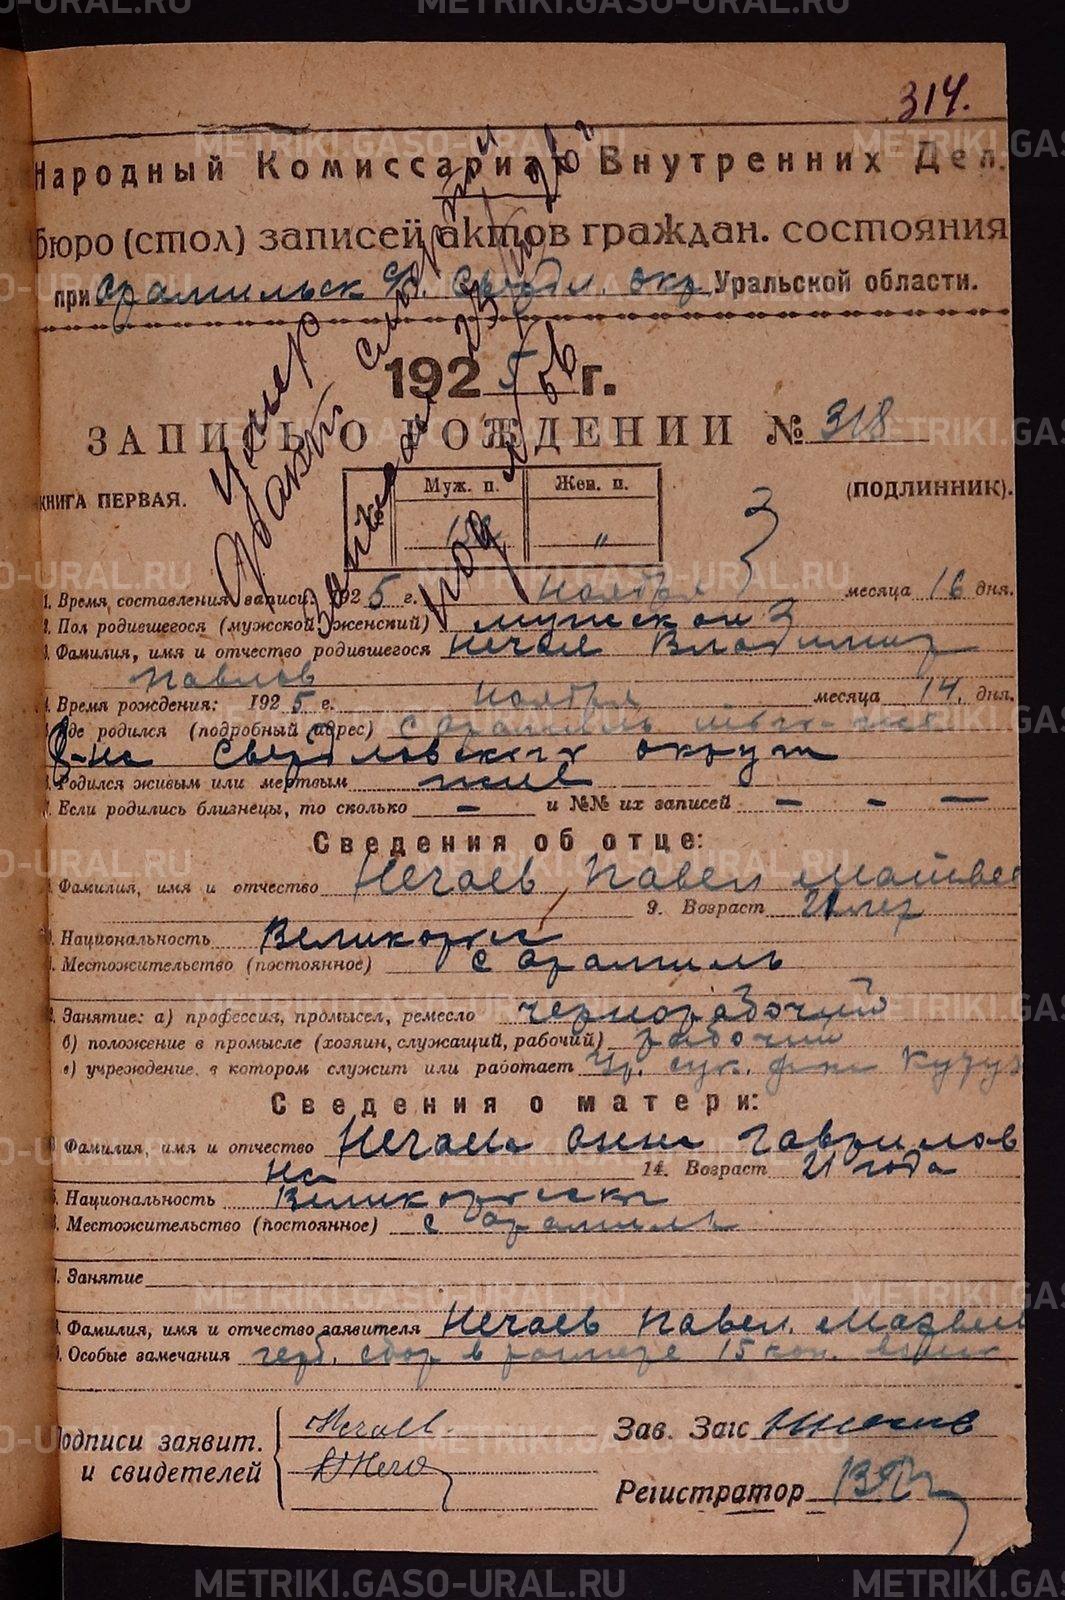 314.
Народный Комиссариат Внутренних Дел.
бюро (стол) записей актов граждан. состояния
при Арамильск Свердл. окр. Уральской области.
1925 г.
ЗАПИСЬ О РОЖДЕНИИ № 318
КНИГА ПЕРВАЯ.
Муж. п. Жен. п.
(ПОДЛИННИК).
Умер
Факт смерти
записан 23
под №
1. Время составления записи: 1925 г. ноября месяца 16 дня.
2. Пол родившегося (мужской, женский) мужской
3. Фамилия, имя и отчество родившегося Нечаев Владимир
Павлов
4. Время рождения: 1925 г. ноября месяца 14 дня.
Где родился (подробный адрес) с Арамиль
р-на Свердловского округа
Родился живым или мертвым жив
Если родились близнецы, то сколько — и №№ их записей — - —
Сведения об отце:
Фамилия, имя и отчество Нечаев Павел Матвее
9. Возраст 21 лет
Национальность Великорос
Местожительство (постоянное) с Арамиль
Занятие: а) профессия, промысел, ремесло чернорабочий
б) положение в промысле (хозяин, служащий, рабочий) рабочий
в) учреждение, в котором служит или работает Ар. сук.
Сведения о матери:
Фамилия, имя и отчество Нечаева Анна Гаврилов
на 14. Возраст 21 года
Национальность Великоросска
Местожительство (постоянное) с Арамиль
Занятие
Фамилия, имя и отчество заявителя Нечаев Павел Матвеев
Особые замечания герб. сбор в размере 15 коп. взыск
Подписи заявит. и свидетелей Нечаев
Зав. Загс
Регистратор
METRIKI.GASO-URAL.RU